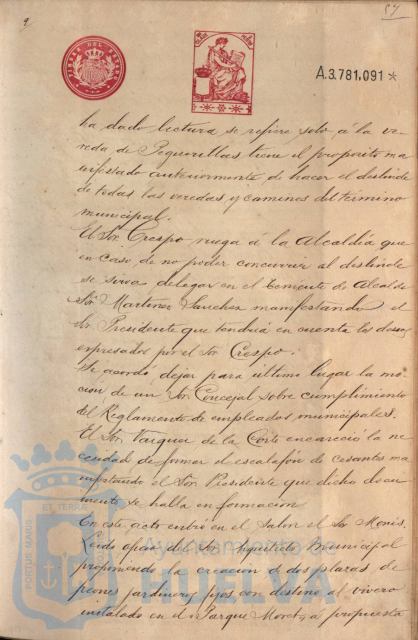 9
57
TIMBRE DEL ESTADO
A.3.781.091 *
ha dado lectura se refiere solo á la ve-
reda de Peguerillas tiene el proposito ma
nifestado anteriormente de hacer el deslinde
de todas las veredas y caminos del termino
municipal.
El Sor. Crespo ruega á la Alcaldia que
en caso de no poder concurrir al deslinde
se sirva delegar en el Teniente de Alcalde
Sor. Martinez Sanchez manifestando el
Sr. Presidente que tendria en cuenta los deseos
expresados por el Sor. Crespo.
Se acordó dejar para ultimo lugar la mo-
cion de un Sor. Concejal sobre cumplimiento
del Reglamento de empleados municipales.
El Sor. Vazquez de la Corte encareció la ne
cesidad de formar el escalafón de cesantes ma
nifestando el Sr. Presidente que dicho docu-
mento se halla en formacion
En este acto entró en el Salon el Sor. Monis.
Leido oficio del Sor. Arquitecto Municipal
proponiendo la creacion de dos plazas de
peones jardineros fijos con destino al vivero
instalado en el Parque Moret, á propuesta
PORTUS MARIS
ET TERRÆ
Ayuntamiento de
HUELVA